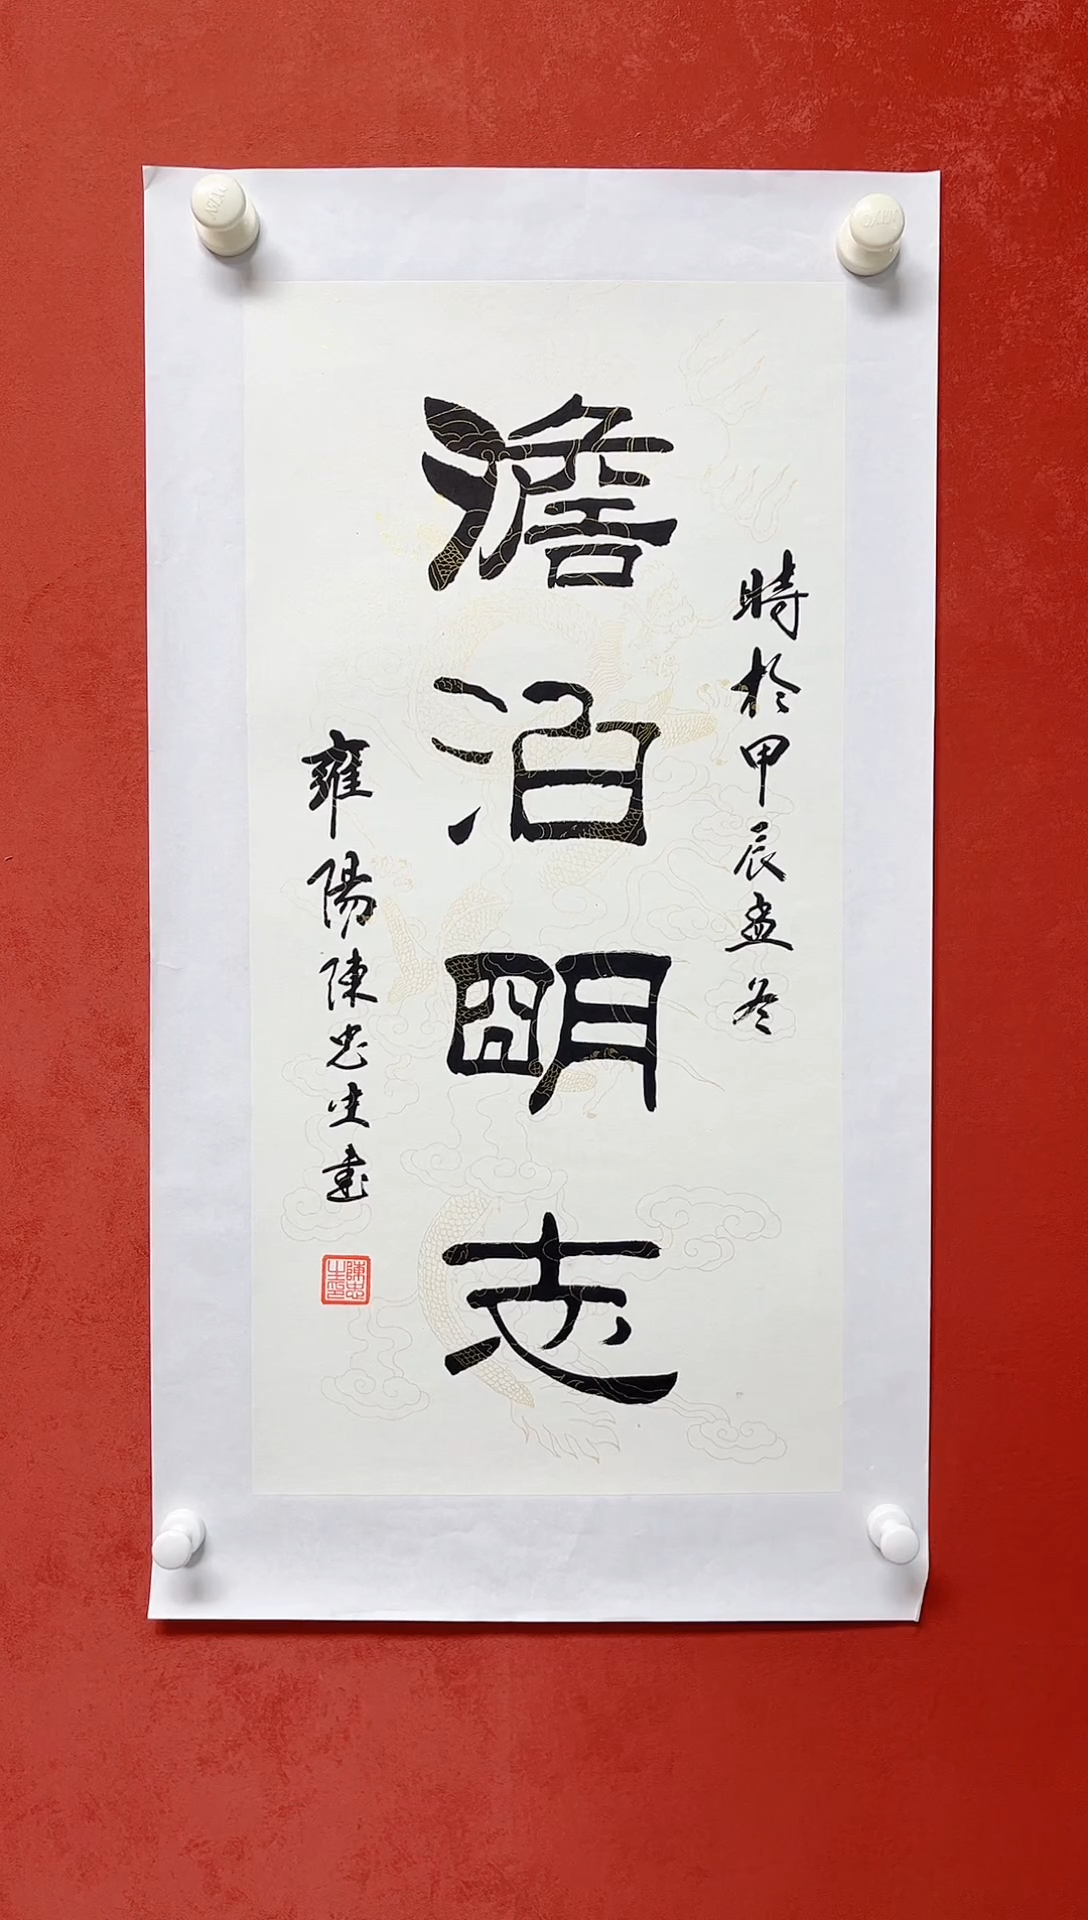 時於甲辰孟冬
澹泊明志
雍陽陳忠生書
陳忠生印